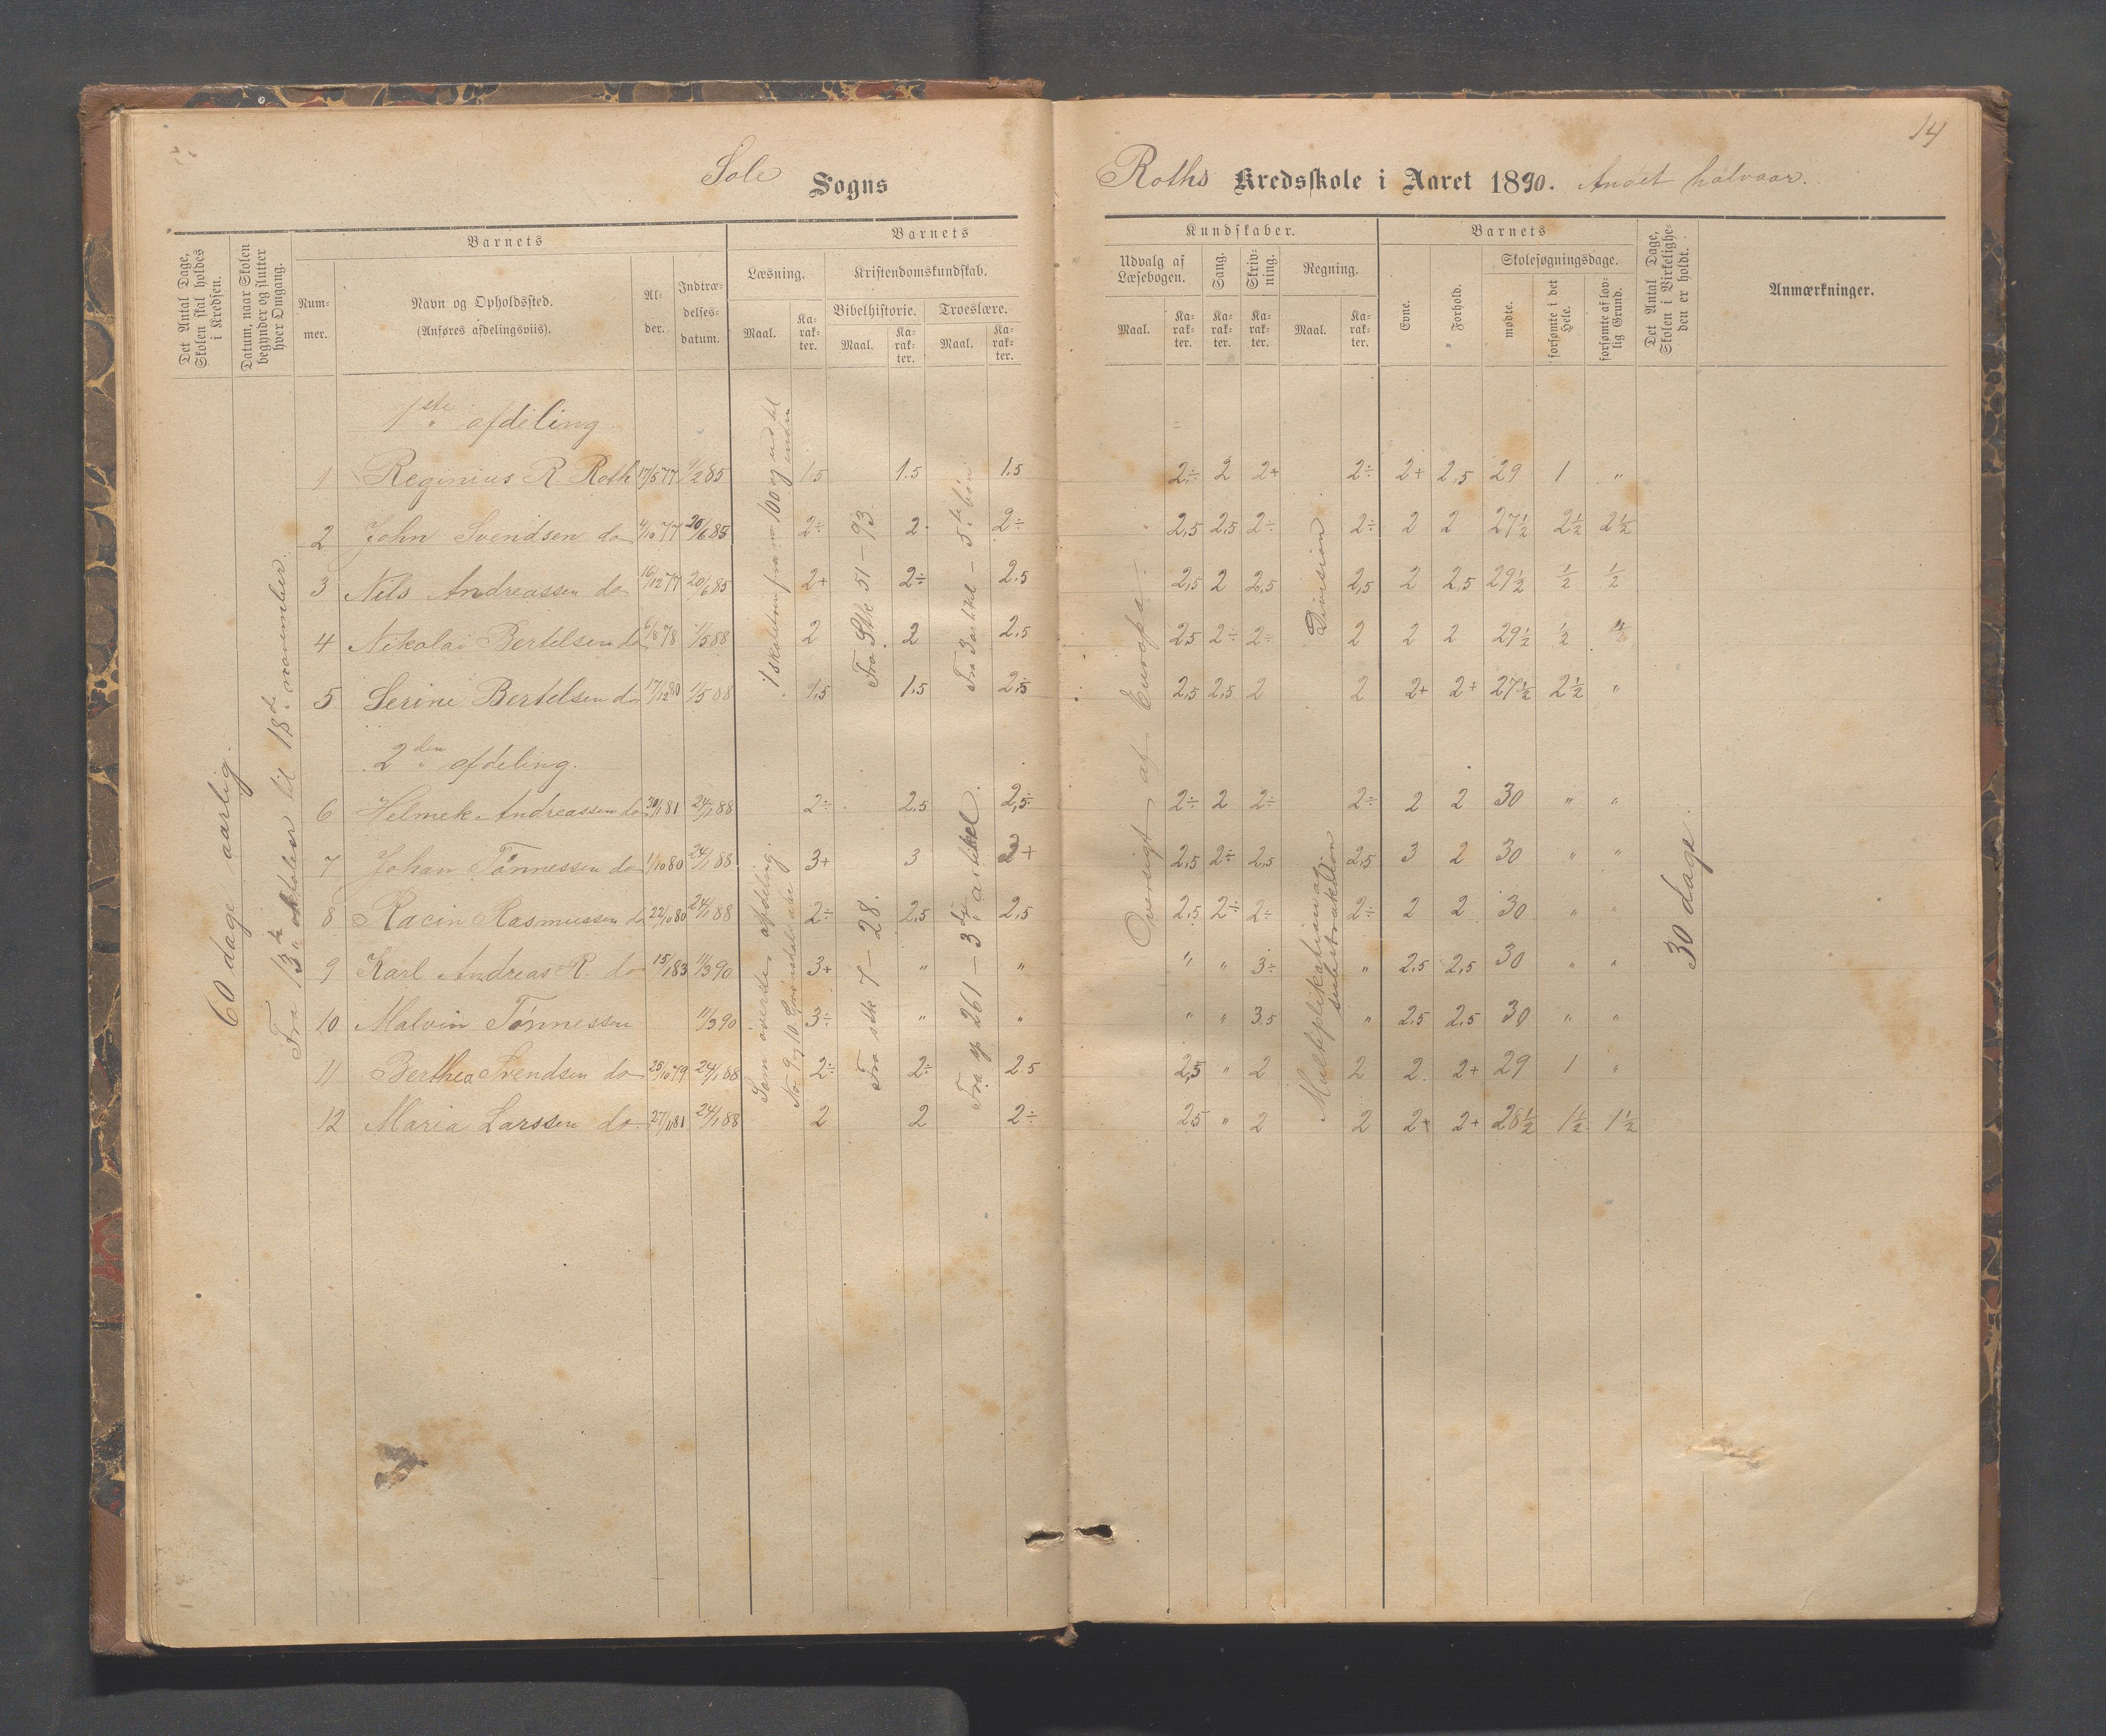 14
Sole Sogns
Roths Kredsskole i Aaret 1890. Andet halvaar.
Det Antal Dage, Skolen skal holdes i Kredsen.
Datum, naar Skolen begynder og slutter hver Omgang.
Barnets
Nummer.
Navn og Opholdssted.
(Anføres afdelingsviis).
Alder.
Indtrædelsesdatum.
Barnets
Læsning.
Maal.
Karakter.
Kristendomskundskab.
Bibelhistorie.
Maal.
Karakter.
Troeslære.
Maal.
Karakter.
Kundskaber.
Udvalg af Læsebogen.
Maal.
Karakter.
Sang.
Karakter.
Skrivning.
Karakter.
Regning.
Maal.
Karakter.
Barnets
Evne.
Forhold.
Skolesøgningsdage.
mødte.
forsømte i det Hele.
forsømte af lovlig Grund.
Det Antal Dage, Skolen i Virkeligheden er holdt.
Anmærkninger.
60 dage aarlig.
Fra 13de oktober til 18de november.
1ste afdeling
1 Reginius R. Roth 17/5 77 9/2 85 1.5 1.5 1.5 2÷ 2 2+ 2÷ 2+ 2,5 29 1 "
2 John Svendsen do 4/10 77 20/6 85 2÷ 2. 2÷ 2,5 2,5 2÷ 2÷ 2 2 27½ 2½ 2½
3 Nils Andreassen do 16/12 77 20/6 85 2+ 2÷ 2.5 2,5 2 2,5 2,5 2 2,5 29½ ½ ½
4 Nikolai Bertelsen do 6/8 78 1/5 88 2 2 2.5 2,5 2÷ 2÷ 2 2 2 29½ ½ "
5 Serine Bertelsen do 17/12 80 1/5 88 1,5 1.5 2,5 2,5 2,5 2 2 2+ 2+ 27½ 2½ "
2den afdeling.
6 Helmek Andreassen do 30/1 81 24/1 88 2÷ 2.5 2,5 2÷ 2 2÷ 2÷ 2 2 30 " "
7 Johan Tønnessen do 1/10 80 24/1 88 3+ 3 2+ 2,5 2÷ 2,5 2,5 3 2 30 " "
8 Racin Rasmussen do 22/10 80 24/1 88 2÷ 2,5 2,5 2,5 2÷ 2÷ 2÷ 2 2 30 " "
9 Karl Andreas R. do 15/1 83 11/3 90 3+ " " " " 3÷ " 2.5 2,5 30 " "
10 Malvin Tønnessen 11/3 90 3÷ " " " " 3.5 " 2.5 2,5 30 " "
11 Berthea Svendsen do 25/10 79 24/1 88 2÷ 2÷ 2.5 2,5 " 2 2 2. 2+ 29 1 "
12 Maria Larssen do. 27/1 81 24/1 88 2 2 2÷ 2,5 " 2 2 2+ 2+ 28½ 1½ 1½
i skaletten fra nr 100 og ud til enden
Fra Stk 51 – 93.
Fra 3 artikel – 5te bøn
Som øverste afdeling.
No 9 og 10
Fra stk 7 – 28.
Fra sp 261 – 3dje artikel.
Oversigt af Europa.
Division
Multiplikation og subtraktion
30 dage.